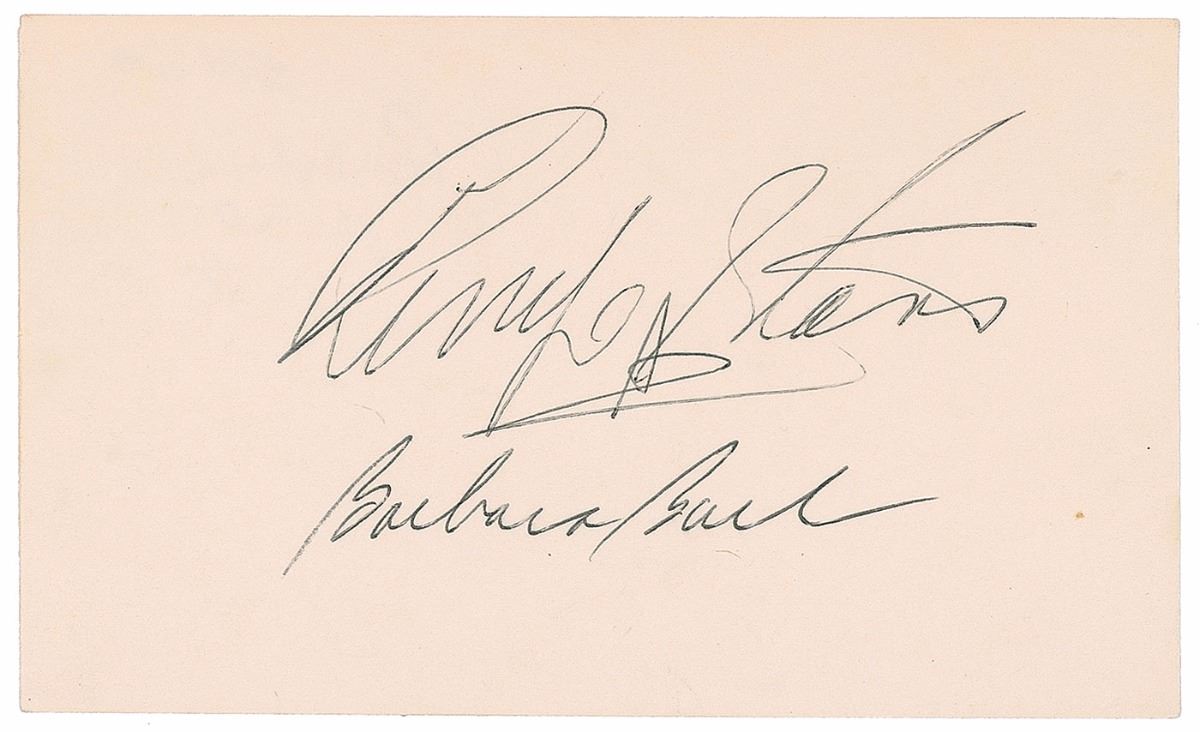 Ringo Starr
Barbara Bach